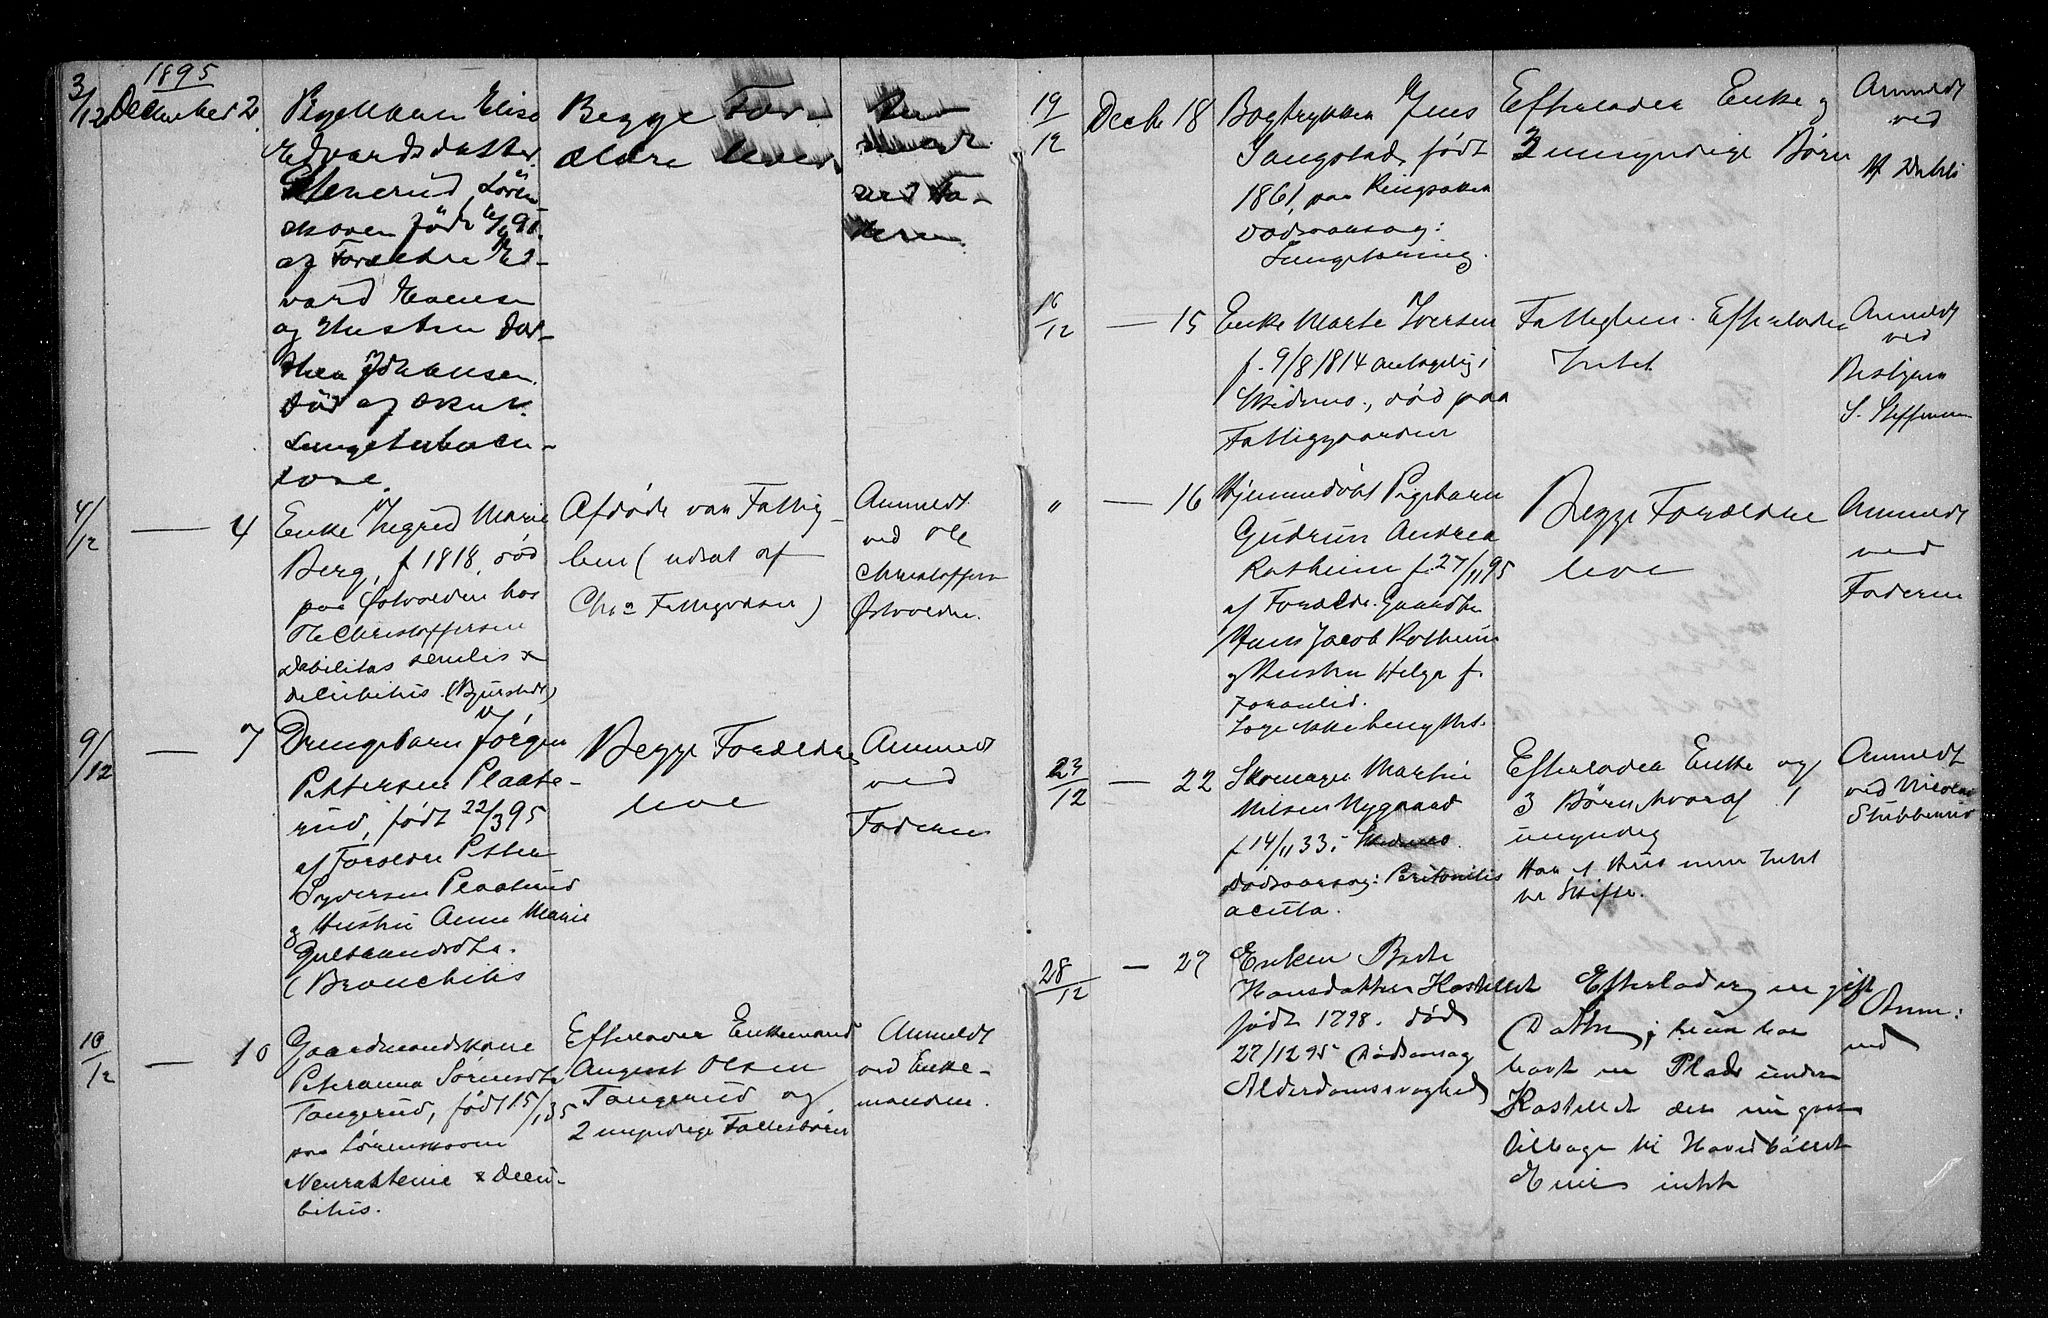 1895
3/12 December 2.
Pigebarn Elise
Edvardsdatter
Stenerud, Lören-
skoven född
af Forældre Ed-
vard Hansen
og Hustru Dor-
thea Johansen.
Död af akut
Lungetuberku-
lose.
Begge For-
ældre lever.
An-
meldt
ved Fa-
deren.
4/12 — 4
Enke Ingrid Marie
Berg, f 1818, död
paa Østvolden hos
Ole Christoffersen
Debilitas senilis &
decubitus (Bjurstedt)
Afdöde var Fattig-
lem (udsat af
Chra Fattigvæsen)
Anmeldt
ved Ole
Christoffersen
Østvolden.
9/12 — 7
Drengebarn Jörgen
Pettersen Plaate-
rud, født 22/3 95
af Forældre Petter
Syversen Plaaterud
og Hustru Anne Marie
Gulbrandsdtr.
(Bronchitis
Begge Forældre
leve
Anmeldt
ved
Faderen
10/12 — 10
Gaardmandskone
Peteranna Sørensdtr
Tangerud, född 15/1 35
paa Lørenskoven
Neurasteni & Decu-
bitus.
Efterlader Enkemand
August Olsen
Tangerud og
2 umyndige Fællesbörn
Anmeldt
ved Enke-
manden.
19/12 Decbr 18
Bogtrykker Jens
Sangstad, født
1861, paa Ringsaker
Dødsaarsag:
Lungetæring.
Efterlader Enke og
3 umyndige Børn
Anmeldt
ved
16/12 — 15
Enke Marte Iversen
f. 9/8 1814 antagelig i
Skedsmo, död paa
Fattiggaarden
Fattiglem. Efterlader
Intet
Anmeldt
ved
Bestyrer
S. Steffensen
" — 16
Hjemmedöbt Pigebarn
Gudrun Andrea
Rotheim f. 27/11 95
af Forældr. Gaardbr
Hans Jacob Rotheim
og Hustru Helga f.
Foranlid.
Læge ikke benyttet.
Begge Forældre
leve
Anmeldt
ved
Faderen
23/12 — 22
Skomager Martin
Nilsen Nygaard
f 14/11 33 i Skedsmo.
Dødsaarsag: Peritonitis
acuta.
Efterlader Enke og
3 Børn hvoraf 1
umyndig
Har et Hus men Intet
at Skifte.
Anmeldt
ved Nicolai
Stubberud
28/12 — 27
Enken Berte
Hansdatter Kastellet
født 1798. død
27/12 95 Dødsaarsag
Alderdomssvaghed
Efterlader en gift
Datter; hun har
havt en Plads under
Kastellet der nu gaar
tilbage til Hovedbölet
Eier intet
Anm:
ved